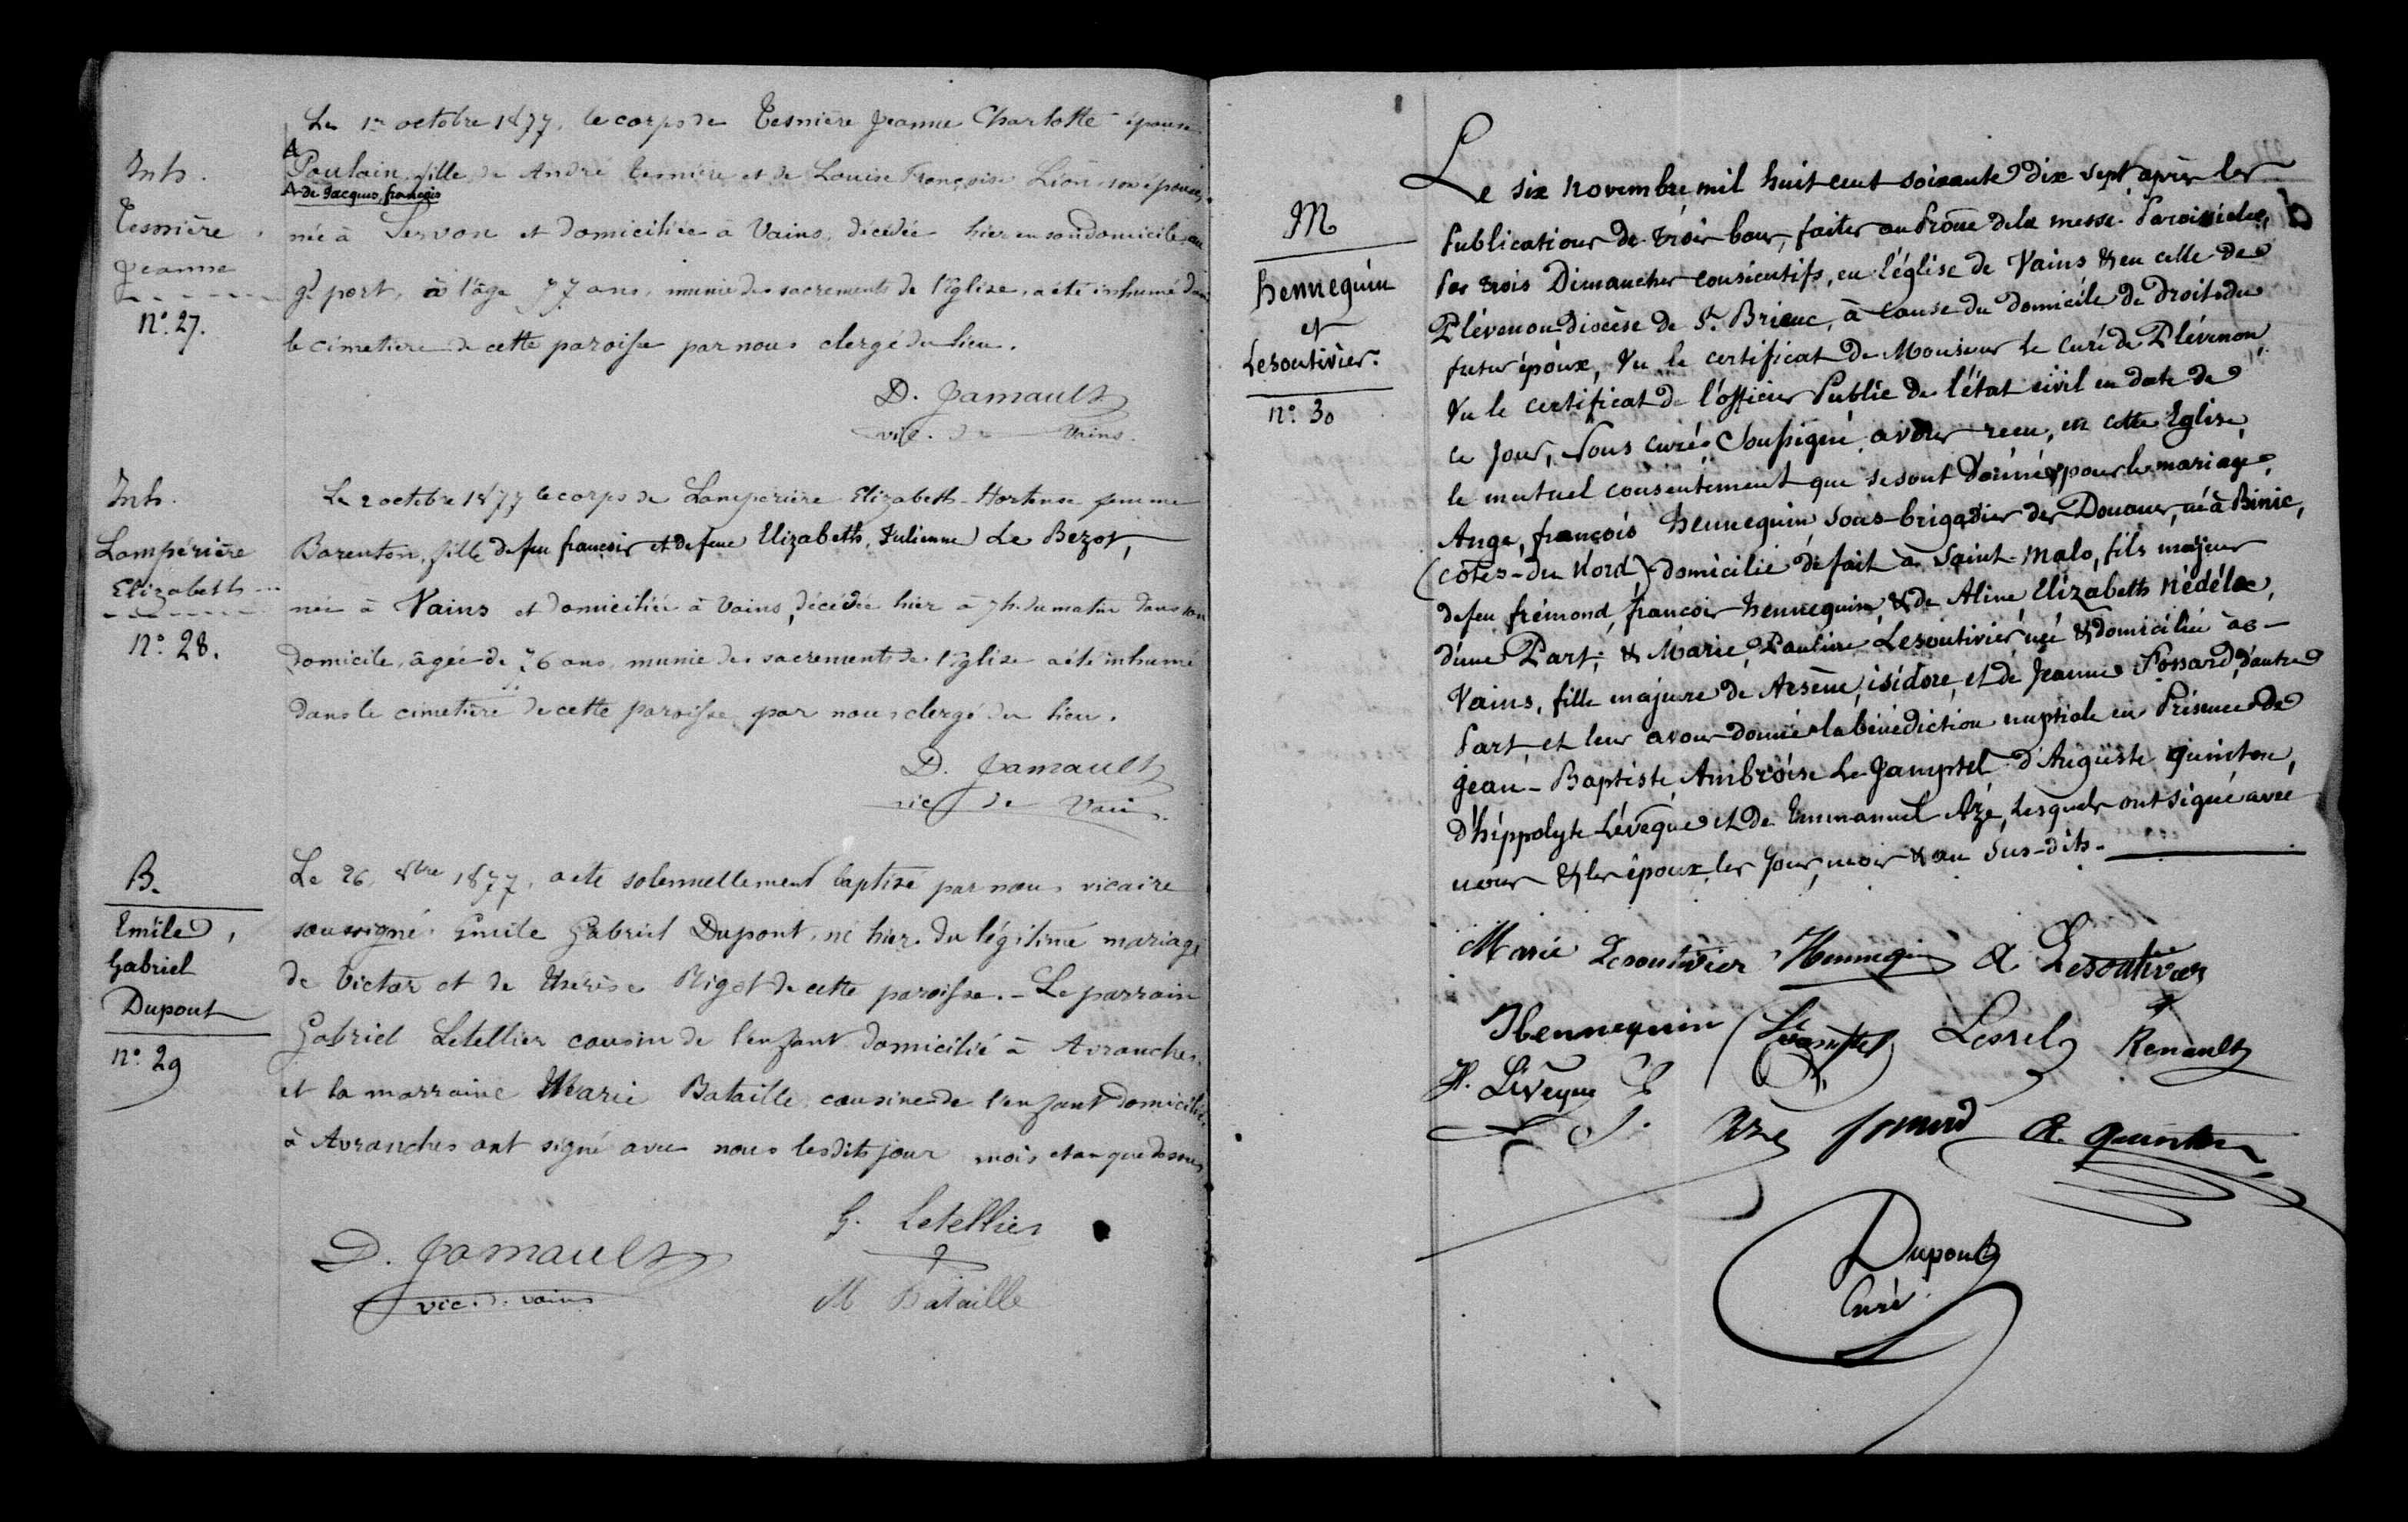 Inh.
Tesnière
Jeanne
N°. 27.
Le 1er octobre 1877, le corps de Tesnière Jeanne Charlotte épouse
Poulain, fille de André Tesnière et de Louise Françoise Lion, son épouse,
de Jacques, françois
née à Servon et domiciliée à Vains, décédée hier en son domicile au
gd port, à l'âge 77 ans, munie des sacrements de l'église, a été inhumé dans
le cimetiere de cette paroisse par nous clergé du lieu.
D. Jamault
vic. de Vains.
Inh.
Lampérière
Elizabeth
N°. 28.
Le 2 octobre 1877 le corps de Lamperiere Elizabeth-Hortense femme
Barenton, fille de feu françois et de feue Elizabeth, Julienne Le Bezot,
née à Vains et domiciliée à Vains, décédée hier à 7 h. du matin dans son
domicile, âgée de 76 ans, munie des sacrements de l'église a été inhumé
dans le cimetière de cette paroisse, par nous clergé du lieu.
D. Jamault
vic de Vains.
B.
Emile,
Gabriel
Dupont
N°. 29
Le 26, 8bre 1877, a été solennellement baptisé par nous vicaire
soussigné Emile Gabriel Dupont, né hier du légitime mariage
de Victor et de Thérèse Rigot de cette paroisse. - Le parrain
Gabriel Letellier cousin de l'enfant domicilié à Avranches,
et la marraine Marie Bataille cousine de l'enfant domiciliée
à Avranches ont signé avec nous lesdits jour mois et an que dessus
G. Letellier
D. Jamault
vic. de vains
M Bataille
M
hennequin
et
Lesoutivier.
N°. 30
Le six novembre mil huit cent soixante dix sept après les
Publications de trois bans, faites au Prône de la messe Paroissiale,
Par trois Dimanches consécutifs, en l'église de Vains & en celle de
Plévenon diocèse de St. Brieuc, à cause du domicile de droit du
futur époux, Vu le certificat de Monsieur le Curé de Plévenon,
Vu le certificat de l'officier Public de l'état civil en date de
ce jour, Nous curé Soussigné avons reçu, en cette Eglise,
le mutuel consentement que se sont donné pour le mariage,
Ange, françois hennequin sous-brigadier des Douanes, né à Binic,
(côtes-du Nord) domicilié de fait à Saint-Malo, fils majeur
de feu frémond, françois hennequin, & de Aline Elizabeth Nédélec,
d'une Part; & Marie, Pauline Lesoutivier née & domiciliée à
Vains, fille majeure de Arsène, isidore, et de Jeanne Fossard, d'autre
Part, et leur avons donné la bénédiction nuptiale en Présence de
jean-Baptiste, Ambroise Le Jamptel d'Auguste quinton,
d'hippolyte Lévêque et de Emmanuel Azé, lesquels ont signé avec
nous & les époux, les jour, mois & an sus-dits.
Marie Lesoutivier Hennequin A. Lesoutivier
Hennequin Lejamptel Renault
H. Lévêque
Azé fossard A. quinton
Dupont
Curé